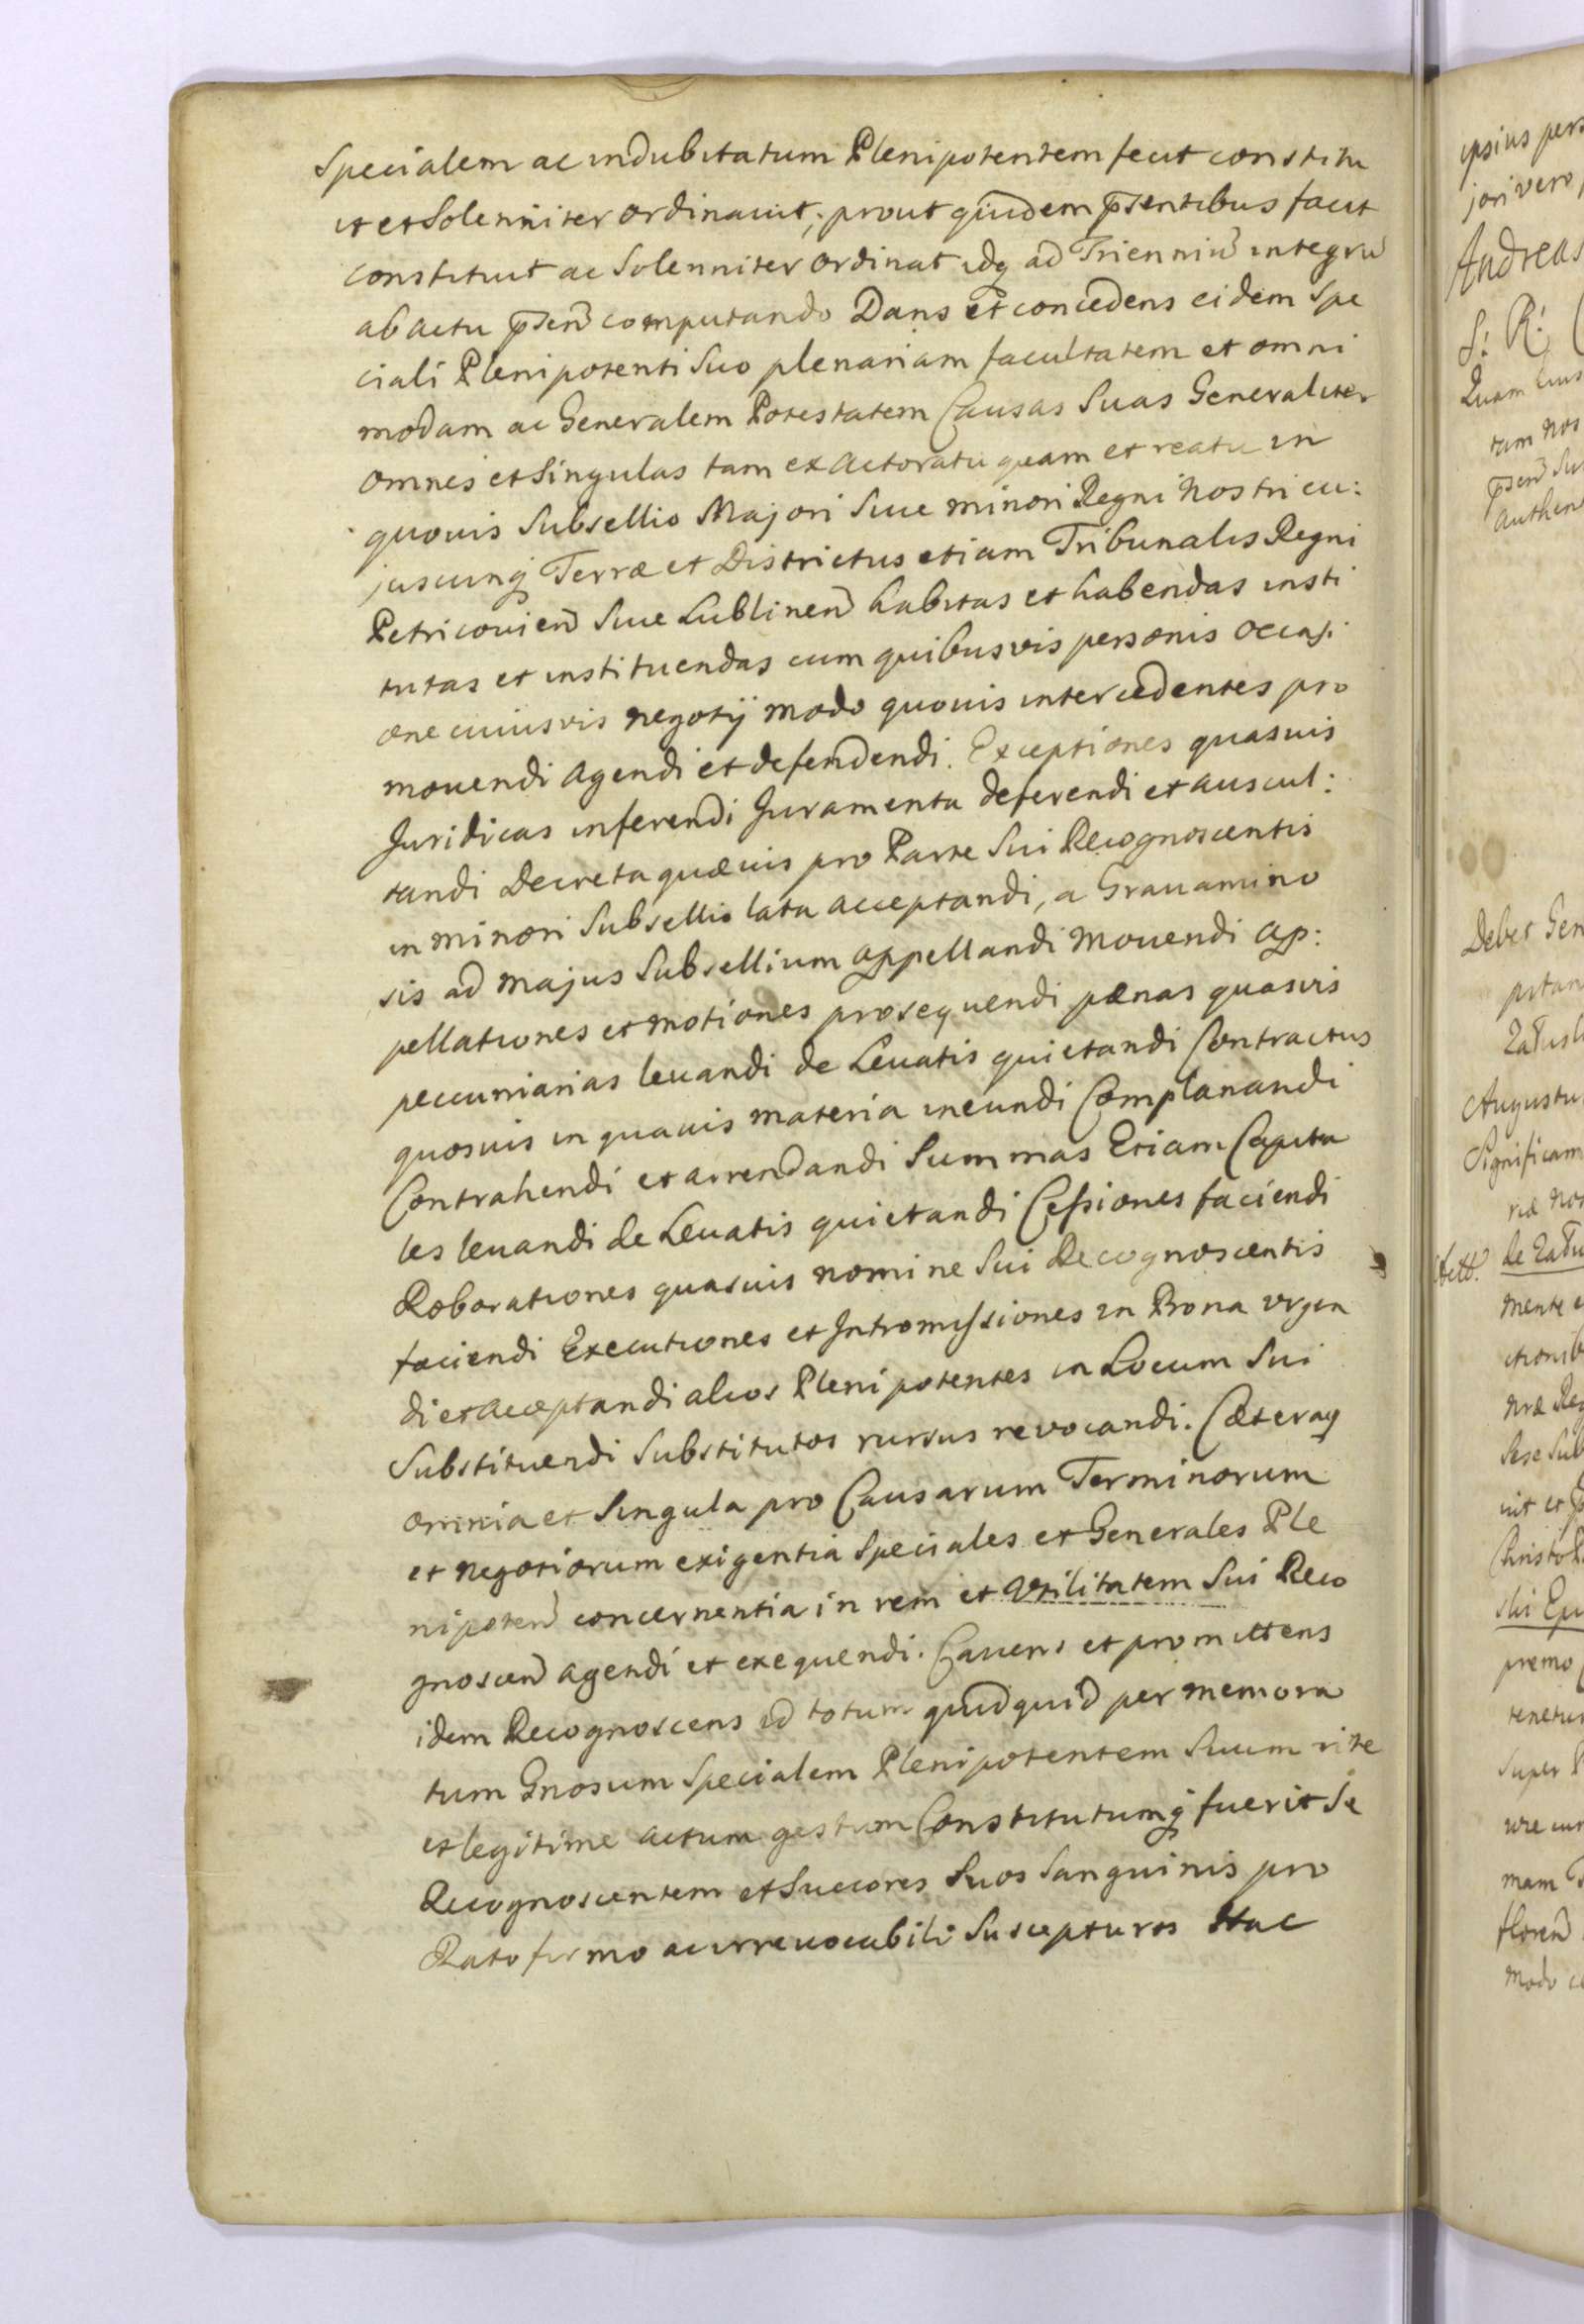 Specialem ac indubitatum Plenipotentem fecit constitu
it et Solenniter ordinauit, prout quidem p̄sentibus facit
constituit ac Solenniter ordinat idq ad Trienniū integrū
ab actu p̄sen̄ computando Dans et concedens eidem Spe
ciali Plenipotenti Suo plenariam facultatem et omni
modam ac Generalem Potestatem Causas Suas Generaliter
omnes et Singulas tam ex actoratu quam et reatu in
quouis Subsellio Majori Siue minori Regni Nostri cu:
juscunq Terræ et Districtus etiam Tribunalis Regni
Petricouien̄ Siue Lublinen̄ habitas et habendas insti
tutas et instituendas cum quibusvis personis occasi
one cuiusvis negotij modo quouis intercedentes pro
mouendi agendi et defendendi. Exceptiones quasuis
Juridicas inferendi Juramenta deferendi et auscul:
tandi Decreta quæuis pro Parte Sui Recognoscentis
in minori Subsellio lata acceptandi, a Grauamino
sis ad majus Subsellium appellandi mouendi ap:
pellationes et motiones prosequendi pœnas quasvis
peccuniarias leuandi de Leuatis quietandi Contractus
quosuis in quauis materia ineundi Complanandi
Contrahendi et arrendandi Summas Etiam Capita
les leuandi de Leuatis quietandi Cessiones faciendi
Roborationes quasuis nomine Sui Recognoscentis
faciendi Executiones et Intromissiones in Bona urgen
di et acceptandi alios Plenipotentes in Locum Sui
Substituendi Substitutos rursus revocandi. Cæteraq
omnia et Singula pro Causarum Terminorum
et negotiorum exigentia Speciales et Generales Ple
nipoten̄ concernentia in rem et Vtilitatem Sui Reco
gnoscen̄ agendi et exequendi. Cauens et promittens
idem Recognoscens id totum quidquid per memora
tum Gnosum Specialem Plenipotentem Suum rite
et legitime actum gestum Constitutumq fuerit Se
Recognoscentem et Succores Suos Sanguinis pro
Rato firmo ac irreuocabili Suscepturos Hac
ipsius pers
jori vero
Andreas
S: R:
Quam
tam nos
p̄sen̄ Su
authen
Debet Gen
Augustu
Significam
riæ nos
mente e
Sese Sub
premo
tenetur
Super
mam
floren̄
modo